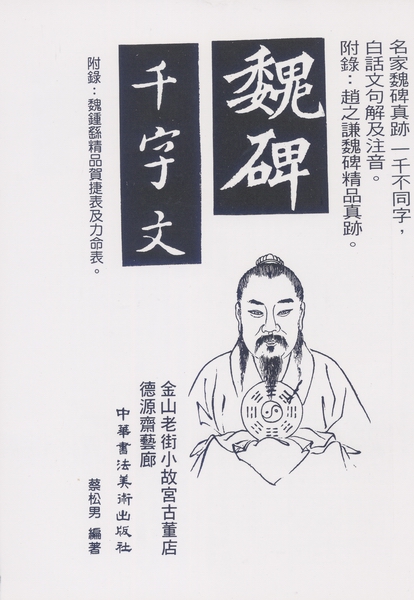 名家魏碑真跡一千不同字，
白話文句解及注音。
附錄：趙之謙魏碑精品真跡。
魏碑
千字文
附錄：魏鍾繇精品賀捷表及力命表。
金山老街小故宮古董店
德源齋藝廊
中華書法美術出版社
蔡松男 編著